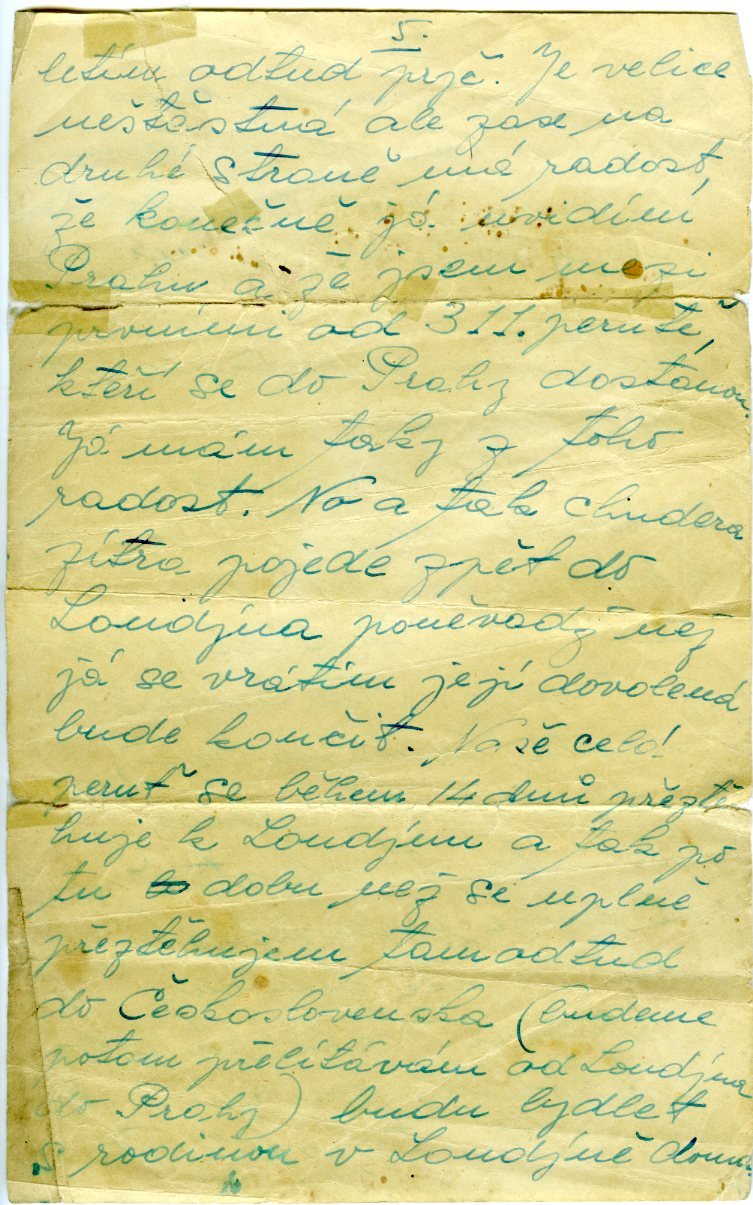 5.
letím odtud pryč. Je velice
neštěstná ale zase na
druhé straně má radost,
že konečně já uvidím
Prahu a že jsem mezi
prvními od 311. perutě,
kteří se do Prahy dostanou.
Já mám taky z toho
radost. No a tak chudera
zítra pojede zpět do
Londýna poněvadž než
já se vrátím její dovolená
bude končit. Naše celá
peruť se během 14 dnů přestě
huje k Londýnu a tak po
tu dobu než se uplně
přestěhujem tamodtud
do Československa (budeme
potom přelítávám od Londýna
do Prahy) budu bydlet
s rodinou v Londýně doma.